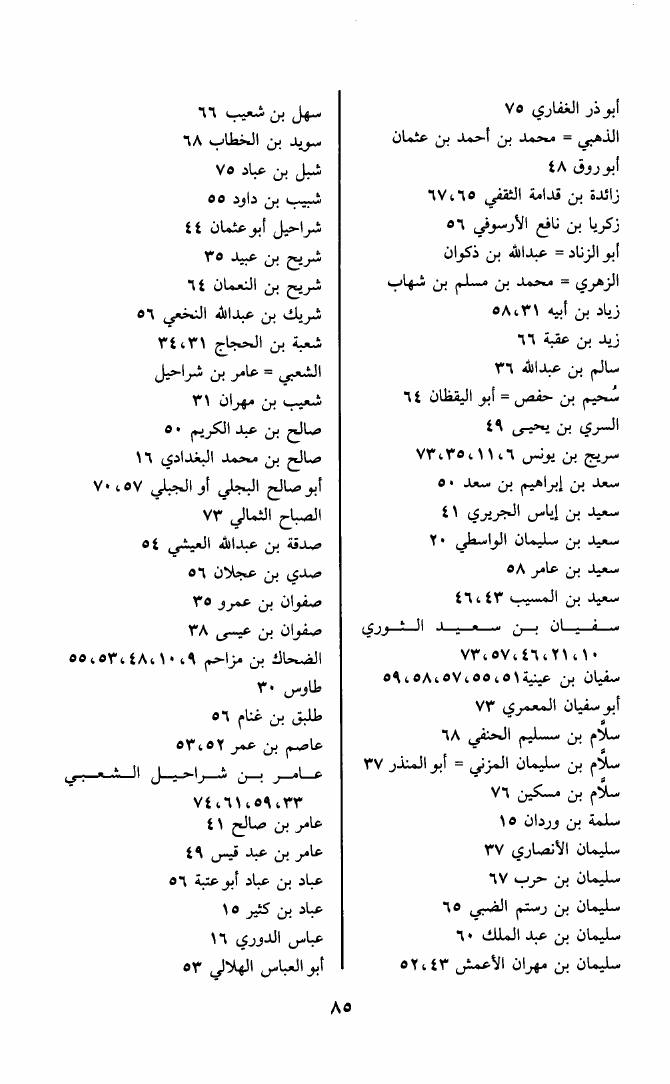 أبو ذر الغفاري ٧٥
الذهبي = محمد بن أحمد بن عثمان
أبو روق ٤٨
زائدة بن قدامة الثقفي ٦٥، ٦٧
زكريا بن نافع الأرسوفي ٥٦
أبو الزناد = عبدالله بن ذكوان
الزهري = محمد بن مسلم بن شهاب
زياد بن أبيه ٣١، ٥٨
زيد بن عقبة ٦٦
سالم بن عبدالله ٣٦
سُحيم بن حفص = أبو اليقظان ٦٤
السري بن يحيى ٤٩
سريج بن يونس ٦، ١١، ٣٥، ٧٣
سعد بن إبراهيم بن سعد ٥٠
سعيد بن إياس الجريري ٤١
سعيد بن سليمان الواسطي ٢٠
سعيد بن عامر ٥٨
سعيد بن المسيب ٤٣، ٤٦
سفيان بن سعيد الثوري
١٠، ٢١، ٤٦، ٥٧، ٧٣
سفيان بن عيينة ٥١، ٥٥، ٥٧، ٥٨، ٥٩
أبو سفيان المعمري ٧٣
سلاَّم بن مسليم الحنفي ٦٨
سلاَّم بن سليمان المزني = أبو المنذر ٣٧
سلاَّم بن مسكين ٧٦
سلمة بن وردان ١٥
سليمان الأنصاري ٣٧
سليمان بن حرب ٦٧
سليمان بن رستم الضبي ٦٥
سليمان بن عبد الملك ٦٠
سليمان بن مهران الأعمش ٤٣، ٥٢
سهل بن شعيب ٦٦
سويد بن الخطاب ٦٨
شبل بن عباد ٧٥
شبيب بن داود ٥٥
شراحيل أبو عثمان ٤٤
شريح بن عبيد ٣٥
شريح بن النعمان ٦٤
شريك بن عبدالله النخعي ٥٦
شعبة بن الحجاج ٣١، ٣٤
الشعبي = عامر بن شراحيل
شعيب بن مهران ٣١
صالح بن عبد الكريم ٥٠
صالح بن محمد البغدادي ١٦
أبو صالح البجلي أو الجبلي ٥٧، ٧٠
الصباح الثمالي ٧٣
صدقة بن عبدالله العيشي ٥٤
صدي بن عجلان ٥٦
صفوان بن عمرو ٣٥
صفوان بن عيسى ٣٨
الضحاك بن مزاحم ٩، ١٠، ٤٨، ٥٣، ٥٥
طاوس ٣٠
طلبق بن غنام ٥٦
عاصم بن عمر ٥٢، ٥٣
عامر بن شراحيل الشعبي
٣٣، ٥٩، ٦١، ٧٤
عامر بن صالح ٤١
عامر بن عبد قيس ٤٩
عباد بن عباد أبو عتبة ٥٦
عباد بن كثير ١٥
عباس الدوري ١٦
أبو العباس الهلالي ٥٣
٨٥